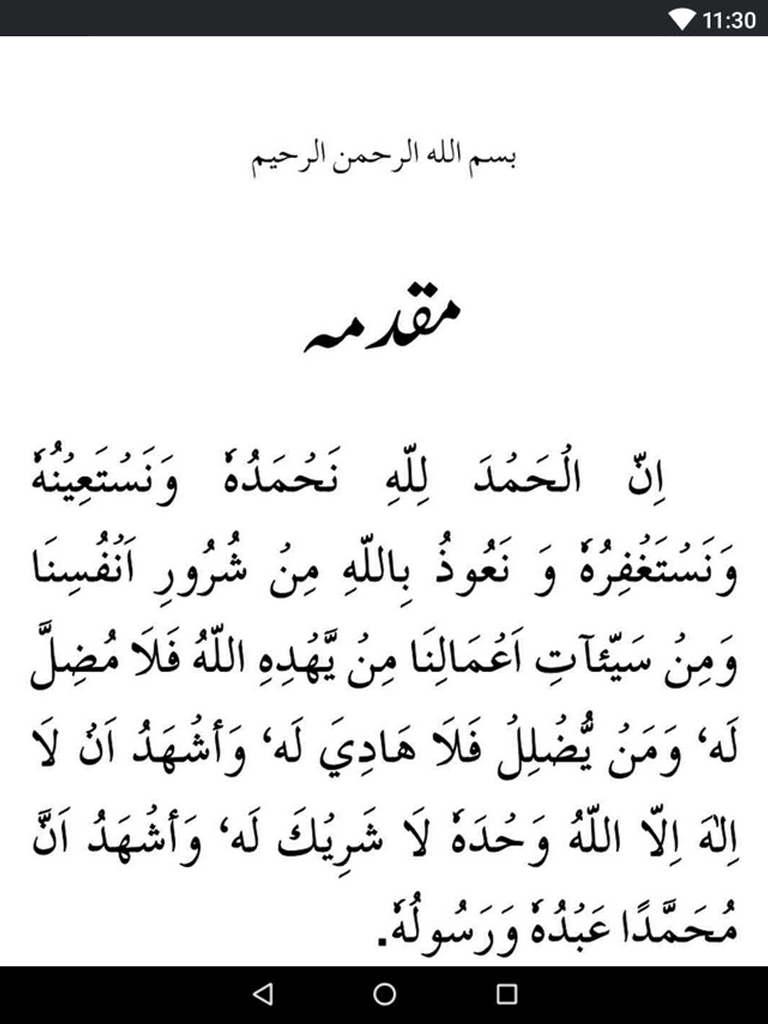 11:30
بسم الله الرحمن الرحيم
مقدمه
اِنّ الْحَمْدَ لِلّهِ نَحْمَدُهٗ وَنَسْتَعِيْنُهٗ
وَنَسْتَغْفِرُهٗ وَ نَعُوذُ بِاللّهِ مِنْ شُرُورِ اَنْفُسِنَا
وَمِنْ سَيّئآتِ اَعْمَالِنَا مِنْ يَّهْدِهِ اللّهُ فَلَا مُضِلَّ
لَه‘ وَمَنْ يُّضْلِلْ فَلَا هَادِيَ لَه‘ وَأشْهَدُ اَنْ لَا
اِلٰهَ اِلّا اللّهُ وَحْدَهٗ لَا شَرِيْكَ لَه‘ وَأشْهَدُ اَنَّ
مُحَمَّدًا عَبْدُهٗ وَرَسُولُهٗ.